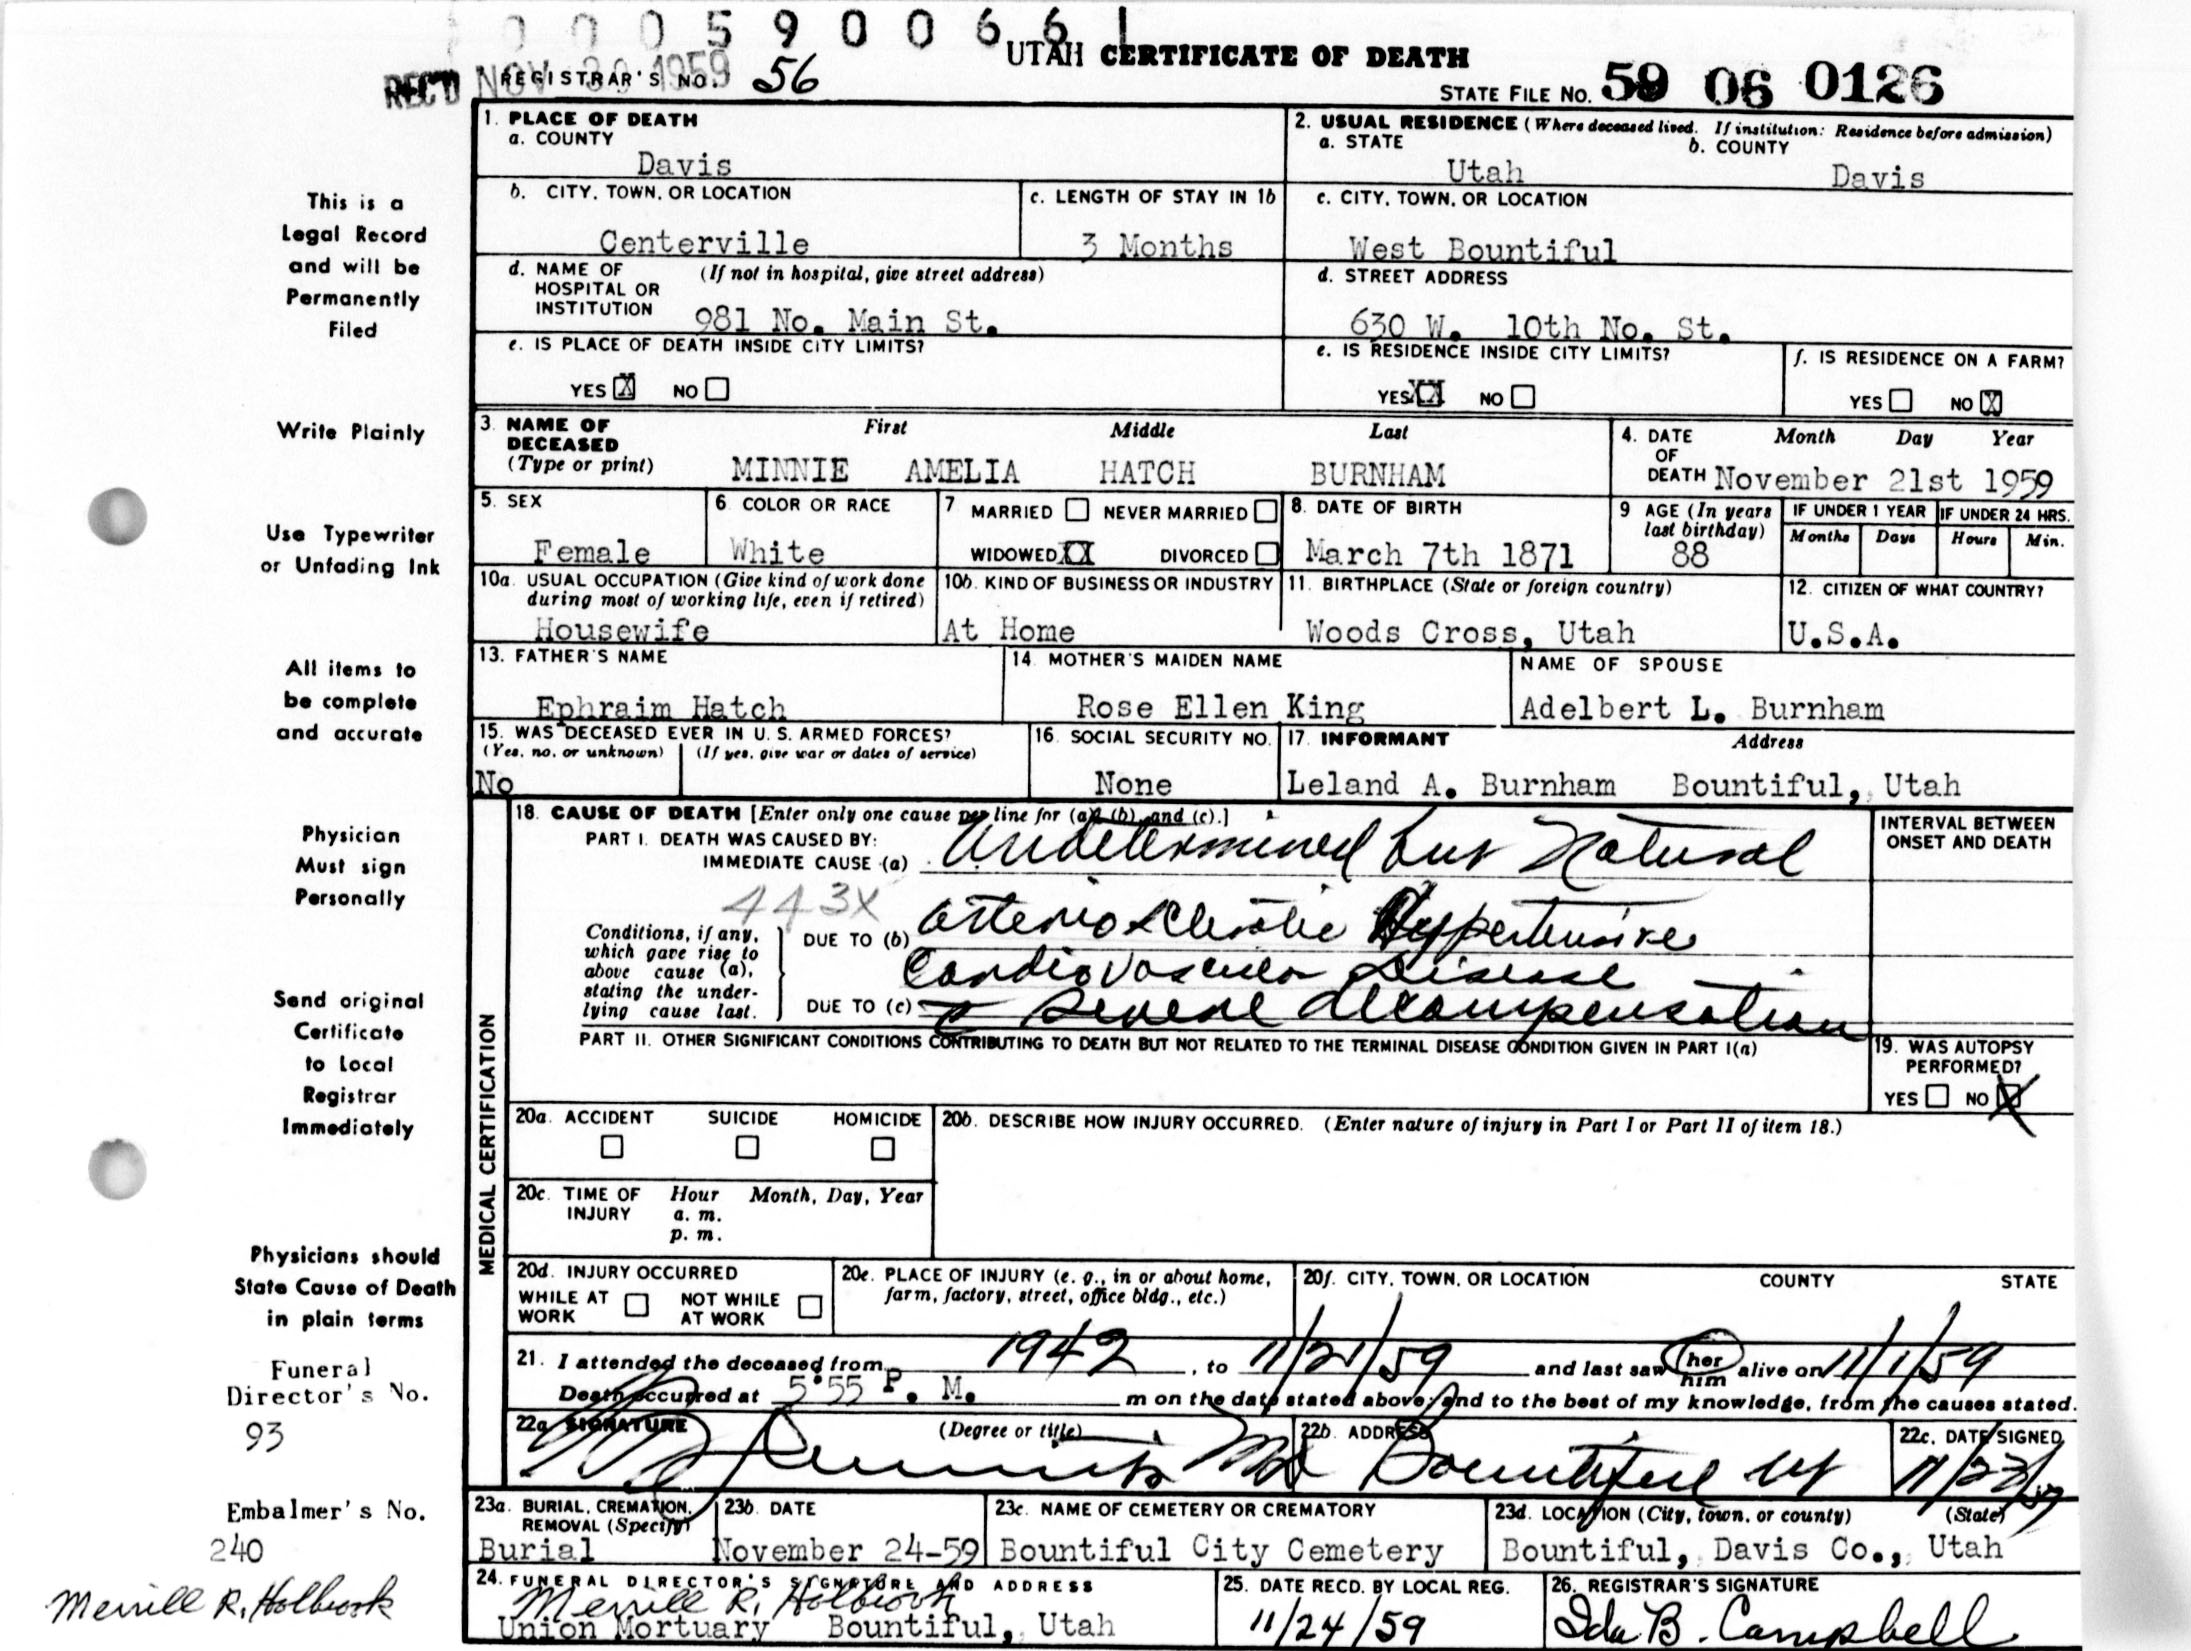 000590066 1
UTAH CERTIFICATE OF DEATH
REC'D NOV 30 1959
REGISTRAR'S NO. 56
STATE FILE NO. 59 06 0126
1. PLACE OF DEATH
a. COUNTY
Davis
2. USUAL RESIDENCE (Where deceased lived. If institution: Residence before admission)
a. STATE b. COUNTY
Utah Davis
b. CITY, TOWN, OR LOCATION
Centerville
c. LENGTH OF STAY IN 1b
3 Months
c. CITY, TOWN, OR LOCATION
West Bountiful
d. NAME OF HOSPITAL OR INSTITUTION (If not in hospital, give street address)
981 No. Main St.
d. STREET ADDRESS
630 W. 10th No. St.
e. IS PLACE OF DEATH INSIDE CITY LIMITS?
YES X NO
e. IS RESIDENCE INSIDE CITY LIMITS?
YES XX NO
f. IS RESIDENCE ON A FARM?
YES NO X
3. NAME OF DECEASED (Type or print)
First Middle Last
MINNIE AMELIA HATCH BURNHAM
4. DATE OF DEATH Month Day Year
November 21st 1959
5. SEX
Female
6. COLOR OR RACE
White
7. MARRIED NEVER MARRIED
WIDOWED XX DIVORCED
8. DATE OF BIRTH
March 7th 1871
9. AGE (In years last birthday)
88
IF UNDER 1 YEAR IF UNDER 24 HRS.
Months Days Hours Min.
10a. USUAL OCCUPATION (Give kind of work done during most of working life, even if retired)
Housewife
10b. KIND OF BUSINESS OR INDUSTRY
At Home
11. BIRTHPLACE (State or foreign country)
Woods Cross, Utah
12. CITIZEN OF WHAT COUNTRY?
U.S.A.
13. FATHER'S NAME
Ephraim Hatch
14. MOTHER'S MAIDEN NAME
Rose Ellen King
NAME OF SPOUSE
Adelbert L. Burnham
15. WAS DECEASED EVER IN U. S. ARMED FORCES?
(Yes, no, or unknown) (If yes, give war or dates of service)
No
16. SOCIAL SECURITY NO.
None
17. INFORMANT Address
Leland A. Burnham Bountiful, Utah
MEDICAL CERTIFICATION
18. CAUSE OF DEATH [Enter only one cause per line for (a), (b), and (c).]
PART I. DEATH WAS CAUSED BY:
IMMEDIATE CAUSE (a) Undetermined but Natural
INTERVAL BETWEEN ONSET AND DEATH
443X
Conditions, if any, which gave rise to above cause (a), stating the underlying cause last.
DUE TO (b) Arterio sclerotic Hypertensive
Cardiovascular Disease
DUE TO (c) c severe decompensation
PART II. OTHER SIGNIFICANT CONDITIONS CONTRIBUTING TO DEATH BUT NOT RELATED TO THE TERMINAL DISEASE CONDITION GIVEN IN PART I(a)
19. WAS AUTOPSY PERFORMED?
YES NO X
20a. ACCIDENT SUICIDE HOMICIDE
20b. DESCRIBE HOW INJURY OCCURRED. (Enter nature of injury in Part I or Part II of item 18.)
20c. TIME OF INJURY Hour Month, Day, Year
a. m.
p. m.
20d. INJURY OCCURRED
WHILE AT WORK NOT WHILE AT WORK
20e. PLACE OF INJURY (e. g., in or about home, farm, factory, street, office bldg., etc.)
20f. CITY, TOWN, OR LOCATION COUNTY STATE
21. I attended the deceased from 1942, to 11/21/59 and last saw her him alive on 11/1/59
Death occurred at 5:55 P. M. m on the date stated above; and to the best of my knowledge, from the causes stated.
22a. SIGNATURE (Degree or title)
MD
22b. ADDRESS
Bountiful Ut
22c. DATE SIGNED
11/23/59
23a. BURIAL, CREMATION, REMOVAL (Specify)
Burial
23b. DATE
November 24-59
23c. NAME OF CEMETERY OR CREMATORY
Bountiful City Cemetery
23d. LOCATION (City, town, or county) (State)
Bountiful, Davis Co., Utah
24. FUNERAL DIRECTOR'S SIGNATURE AND ADDRESS
Merrill R. Holbrook
Union Mortuary Bountiful, Utah
25. DATE RECD. BY LOCAL REG.
11/24/59
26. REGISTRAR'S SIGNATURE
Ida B. Campbell
This is a
Legal Record
and will be
Permanently
Filed
Write Plainly
Use Typewriter
or Unfading Ink
All items to
be complete
and accurate
Physician
Must sign
Personally
Send original
Certificate
to Local
Registrar
Immediately
Physicians should
State Cause of Death
in plain terms
Funeral
Director's No.
93
Embalmer's No.
240
Merrill R. Holbrook